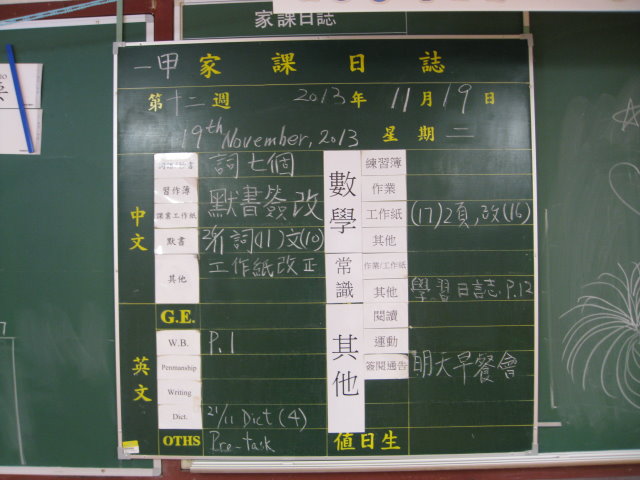 家課日誌
一甲 家課日誌
第十二週 2013年 11月19日
19th November, 2013 星期二
中文
詞七個
習作簿 默書簽改
課業工作紙
默書 派詞(11)文(10)
其他 工作紙改正
數學
練習簿
作業
工作紙 (17)2頁,改(16)
其他
常識
作業/工作紙
其他 學習日誌 P.12
英文
G.E.
W.B. P.1
Penmanship
Writing
Dict. 21/11 Dict (4)
OTHS Pre-task
其他
閱讀
運動
簽閱通告 明天早餐會
值日生